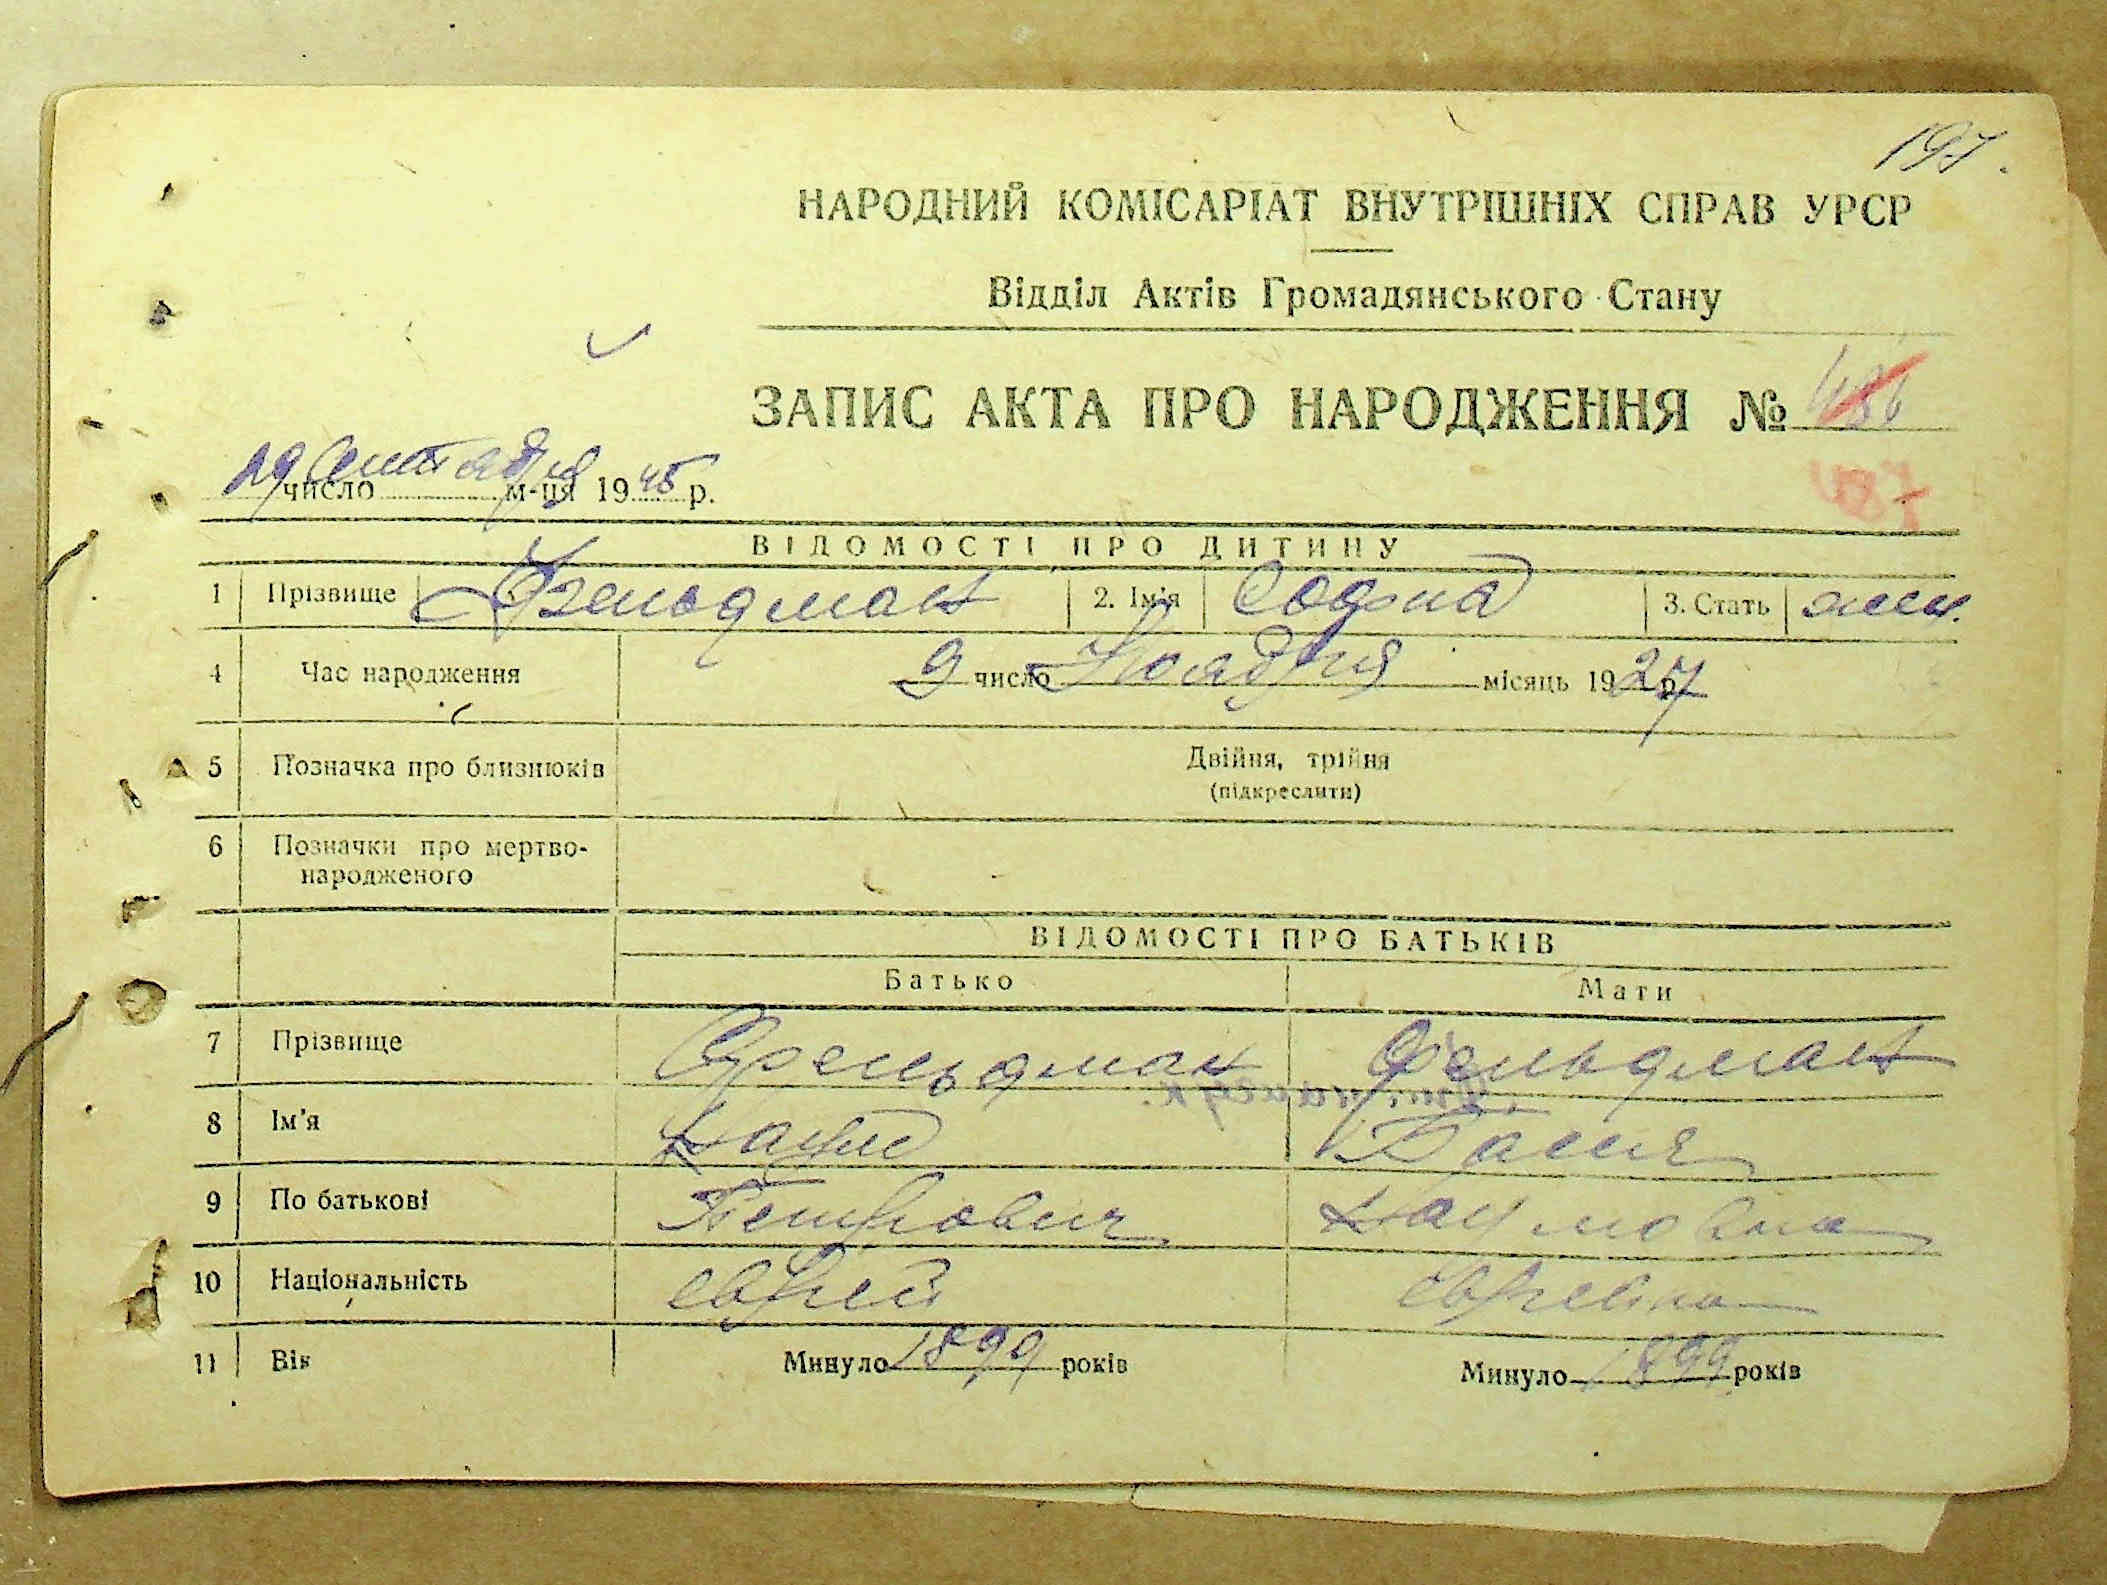 197.
НАРОДНИЙ КОМІСАРІАТ ВНУТРІШНІХ СПРАВ УРСР
Відділ Актів Громадянського Стану
ЗАПИС АКТА ПРО НАРОДЖЕННЯ № 486
29 число Сентября м-ця 1945 р.
ВІДОМОСТІ ПРО ДИТИНУ
1 Прізвище Фельдман 2. Ім'я Софья 3. Стать жен.
4 Час народження 9 число Ноября місяць 1927 р.
5 Позначка про близнюків Двійня, трійня
(підкреслити)
6 Позначки про мертво-
народженого
ВІДОМОСТІ ПРО БАТЬКІВ
Батько Мати
7 Прізвище Фельдман Фельдман
8 Ім'я Бася
9 По батькові Петрович Наумовна
10 Національність еврей еврейка
11 Вік Минуло 1899 років Минуло 1899 років